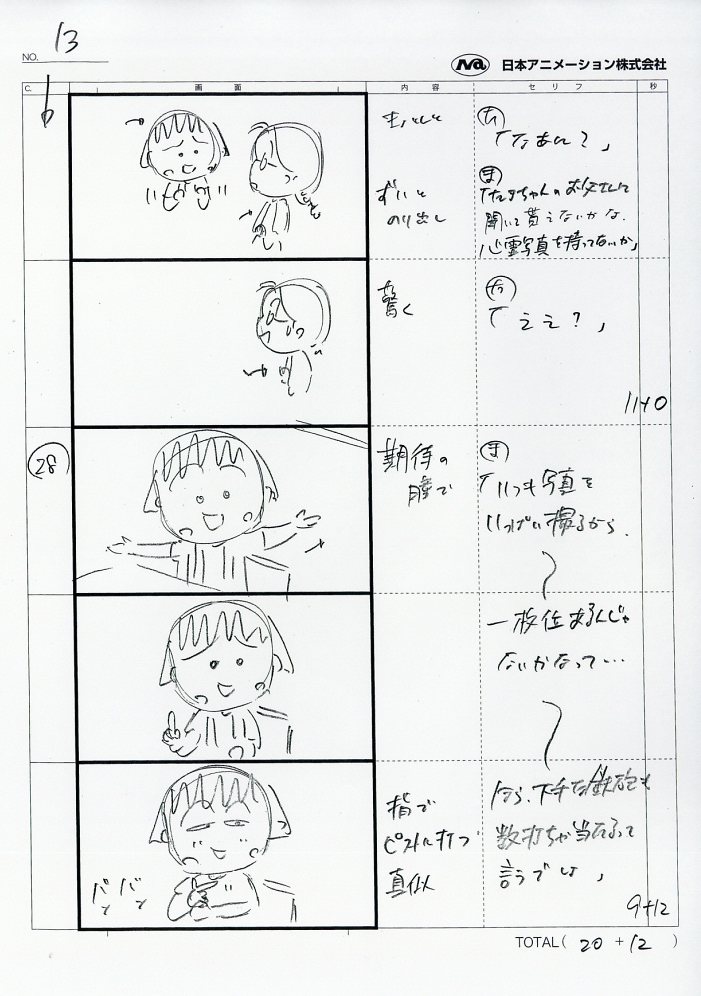 NO. 13
Na 日本アニメーション株式会社
C. 画面 内容 セリフ 秒
6
た
「なあに?」
ずいと
のり出し
ま
「たまちゃんのお父さんに
聞いて貰えないかな、
心霊写真を持ってないか」
驚く
た
「ええ?」
11+0
28
期待の
瞳で
ま
「いつも写真を
いっぱい撮るから、
一枚位あるんじゃ
ないかなって…
指で
ピストル打つ
真似
バンバン
ほら、下手な鉄砲も
数打ちゃ当たるって
言うでしょ」
9+12
TOTAL( 20 + 12 )